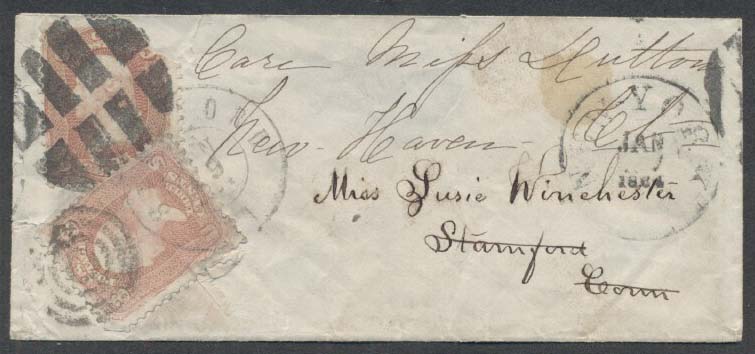 Care Miss Hutton
New-Haven- Ct-
Miss Susie Winchester
Stamford
Conn
JAN
1864